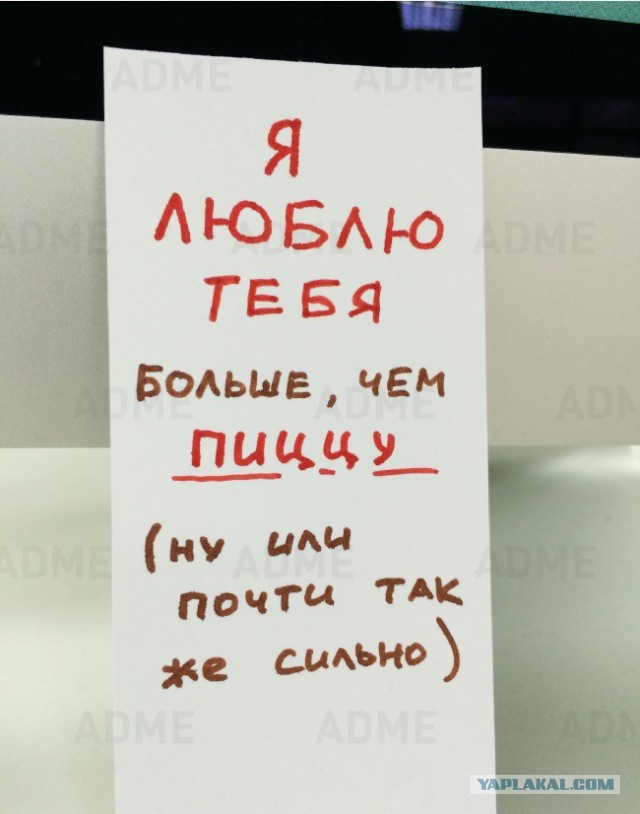 Я
ЛЮБЛЮ
ТЕБЯ
БОЛЬШЕ, ЧЕМ
ПИЦЦУ
(НУ ИЛИ
ПОЧТИ ТАК
ЖЕ СИЛЬНО)
ADME ADME
ADME ADME ADME
ADME ADME ADME
ADME ADME ADME
ADME ADME ADME
YAPLAKAL.COM